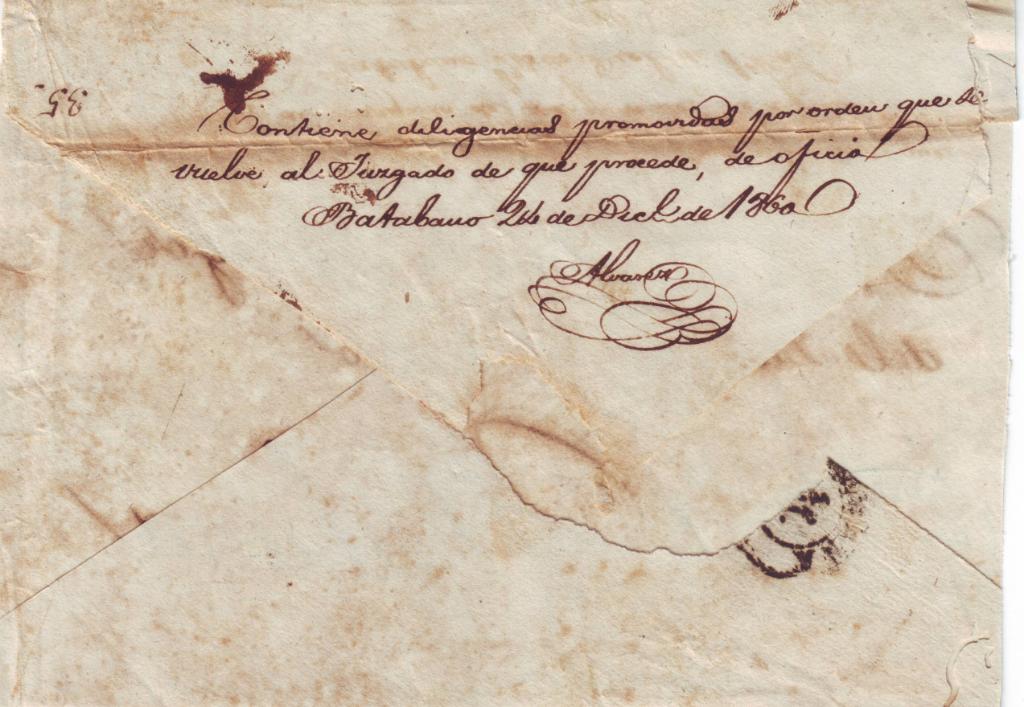 Contiene diligencias promovidas por orden que de-
vuelve al Juzgado de que procede, de oficio
Batabano 24 de Dice de 1860
Alvarez